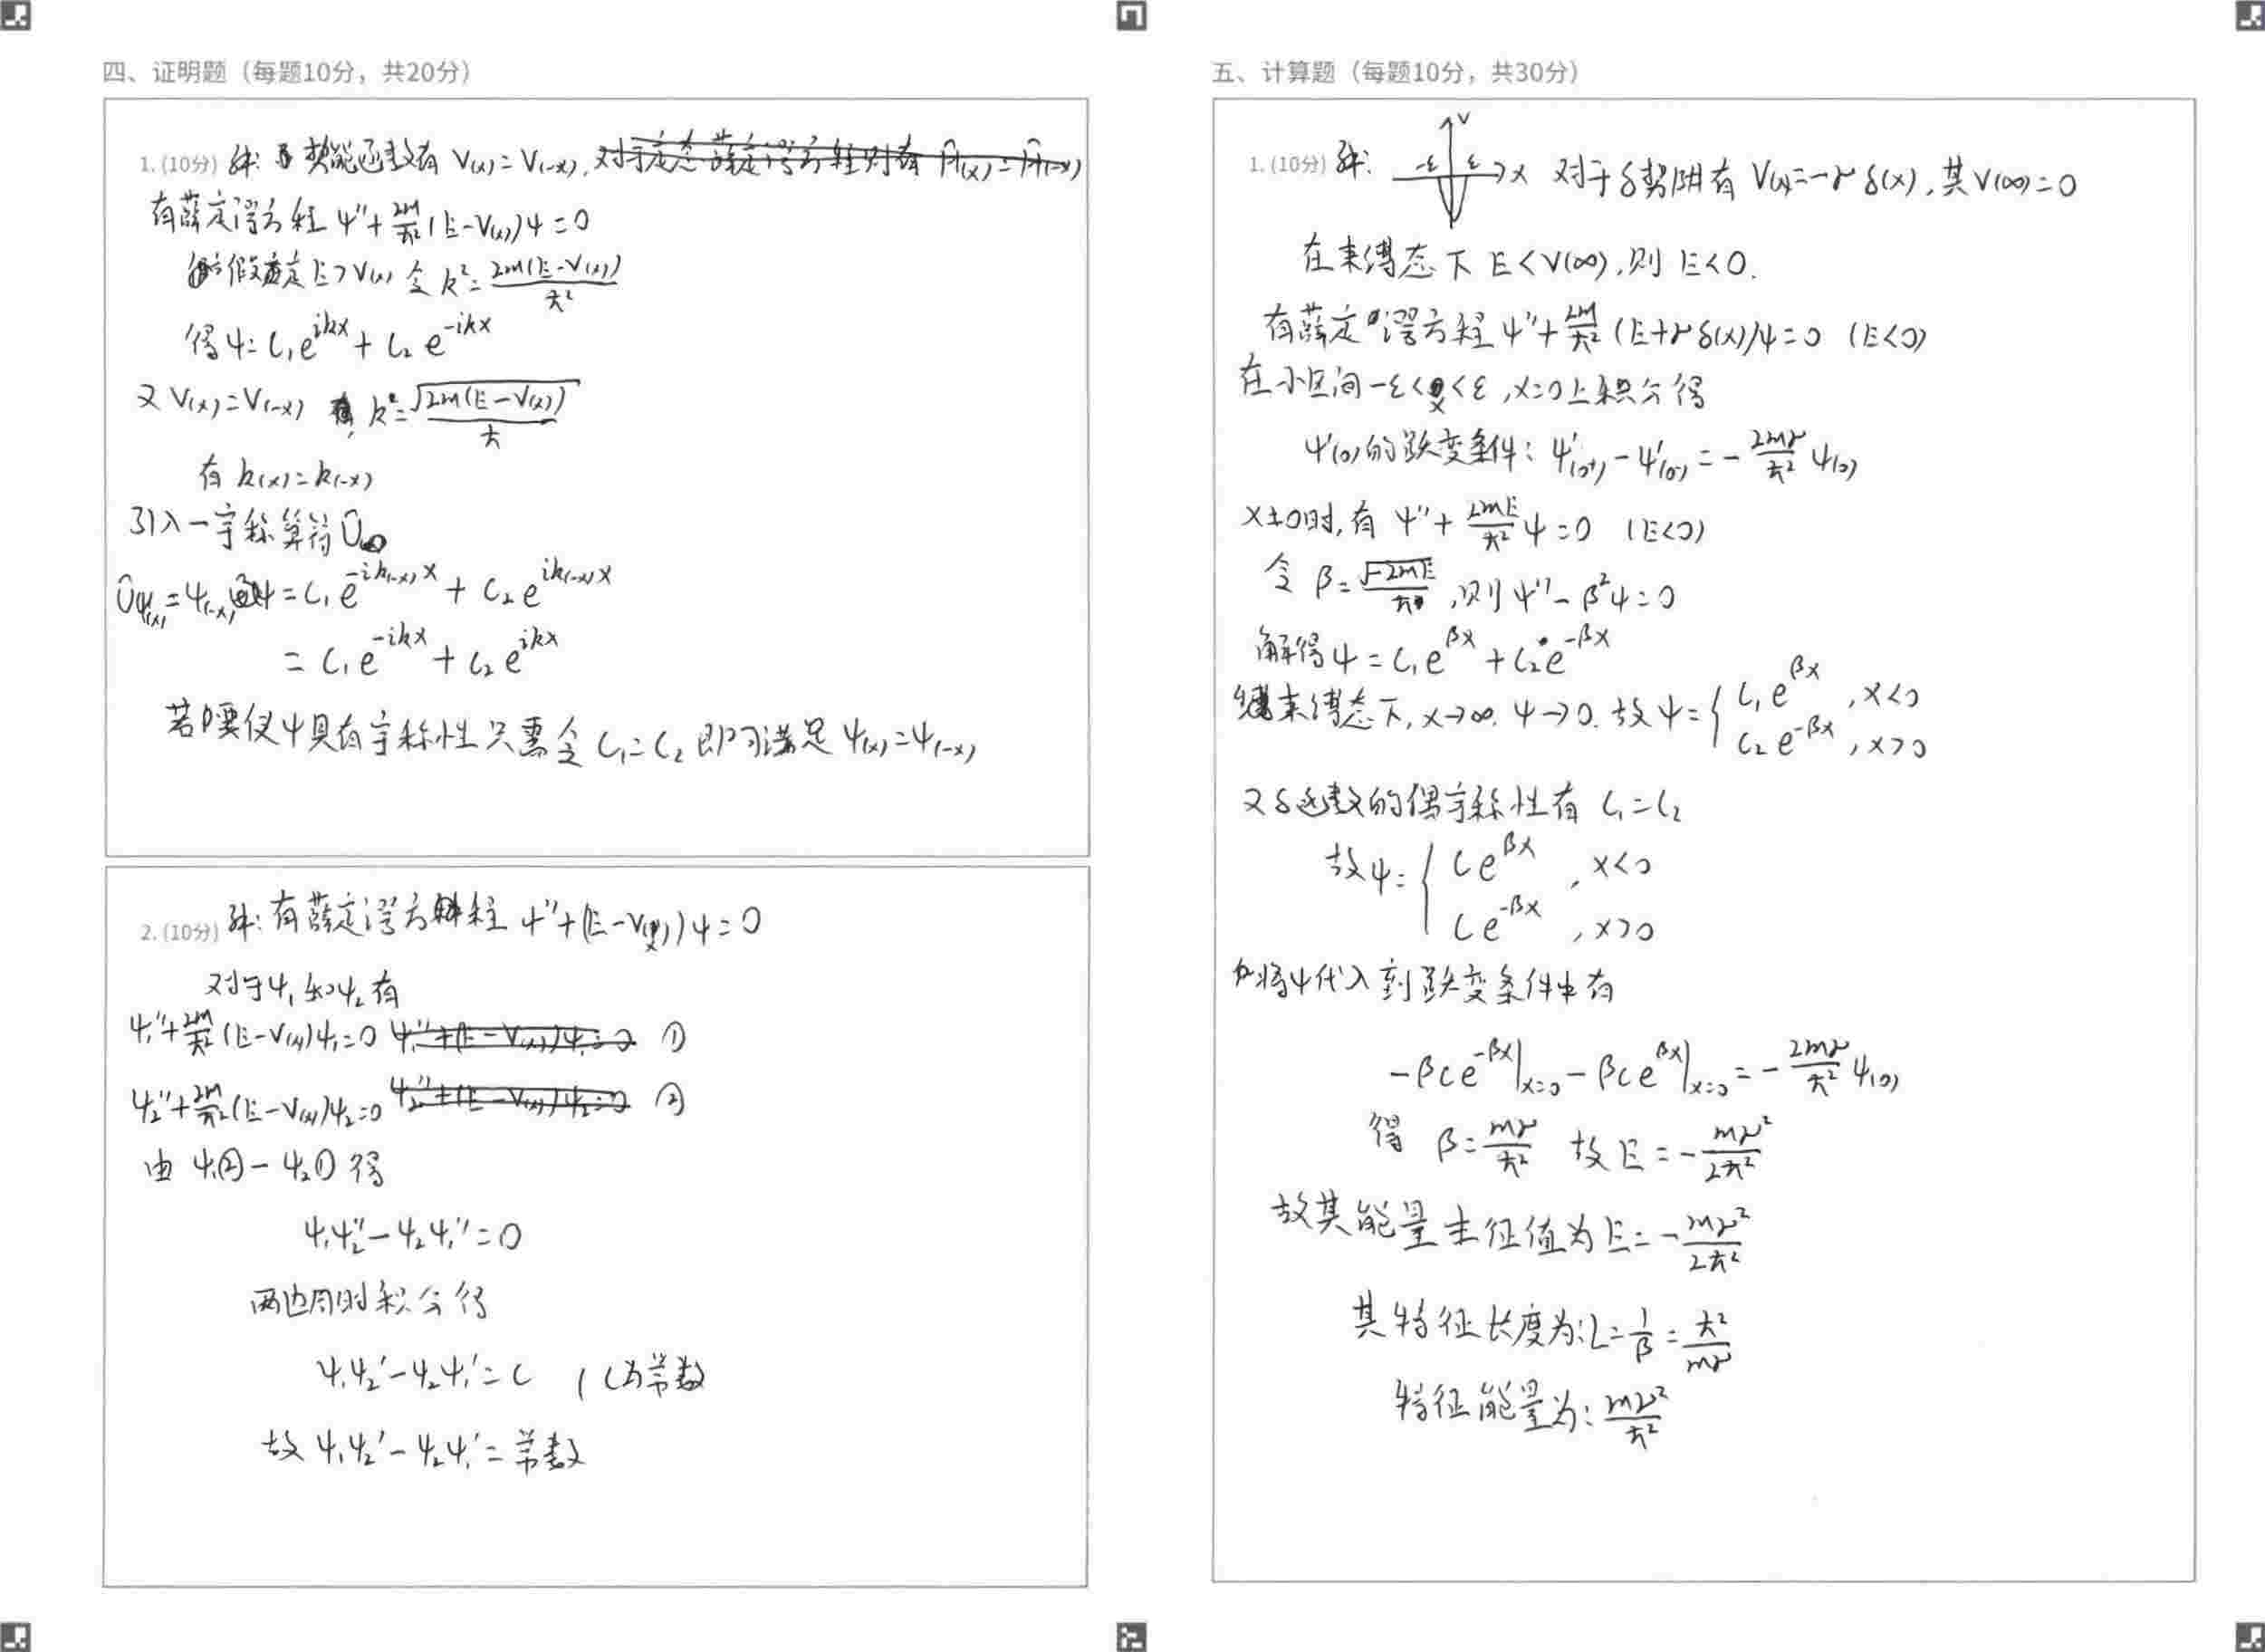 四、证明题（每题10分，共20分）
1. (10分) 解: 势能函数有 V(x)=V(-x),
有薛定谔方程 ψ''+2m/ħ²(E-V(x))ψ=0
假定E>V(x) 令 k²=2m(E-V(x))/ħ²
得ψ=C₁e^{ikx}+C₂e^{-ikx}
又 V(x)=V(-x) k=√(2m(E-V(x)))/ħ
有 k(x)=k(-x)
引入一宇称算符Û
Ûψ(x)=ψ(-x)=C₁e^{-ik(-x)x}+C₂e^{ik(-x)x}
=C₁e^{-ikx}+C₂e^{ikx}
若要使ψ具有宇称性只需令 C₁=C₂ 即可满足 ψ(x)=ψ(-x)
2. (10分) 解: 有薛定谔方程 ψ''+(E-V(x))ψ=0
对于ψ₁和ψ₂有
ψ₁''+2m/ħ²(E-V(x))ψ₁=0 ①
ψ₂''+2m/ħ²(E-V(x))ψ₂=0 ②
由 ψ₁②-ψ₂① 得
ψ₁ψ₂''-ψ₂ψ₁''=0
两边同时积分得
ψ₁ψ₂'-ψ₂ψ₁'=C (C为常数
故 ψ₁ψ₂'-ψ₂ψ₁'=常数
五、计算题（每题10分，共30分）
1. (10分) 解: V -ε ε x 对于δ势阱有 V(x)=-γδ(x), 其V(∞)=0
在束缚态下 E<V(∞), 则 E<0.
有薛定谔方程 ψ''+2m/ħ²(E+γδ(x))ψ=0 (E<0)
在小区间 -ε<x<ε, x=0上积分得
ψ'(0)的跃变条件: ψ'(0⁺)-ψ'(0⁻)=-2mγ/ħ² ψ(0)
x≠0时, 有 ψ''+2mE/ħ² ψ=0 (E<0)
令 β=√(-2mE)/ħ, 则 ψ''-β²ψ=0
解得ψ=C₁e^{βx}+C₂e^{-βx}
束缚态下, x→∞. ψ→0. 故 ψ={C₁e^{βx}, x<0
C₂e^{-βx}, x>0
又δ函数的偶宇称性有 C₁=C₂
故ψ={Ce^{βx}, x<0
Ce^{-βx}, x>0
将ψ代入到跃变条件中有
-βCe^{-βx}|x=0 - βCe^{βx}|x=0 = -2mγ/ħ² ψ(0)
得 β=mγ/ħ² 故E=-mγ²/2ħ²
故其能量本征值为E=-mγ²/2ħ²
其特征长度为: L=1/β=ħ²/mγ
特征能量为: mγ²/ħ²